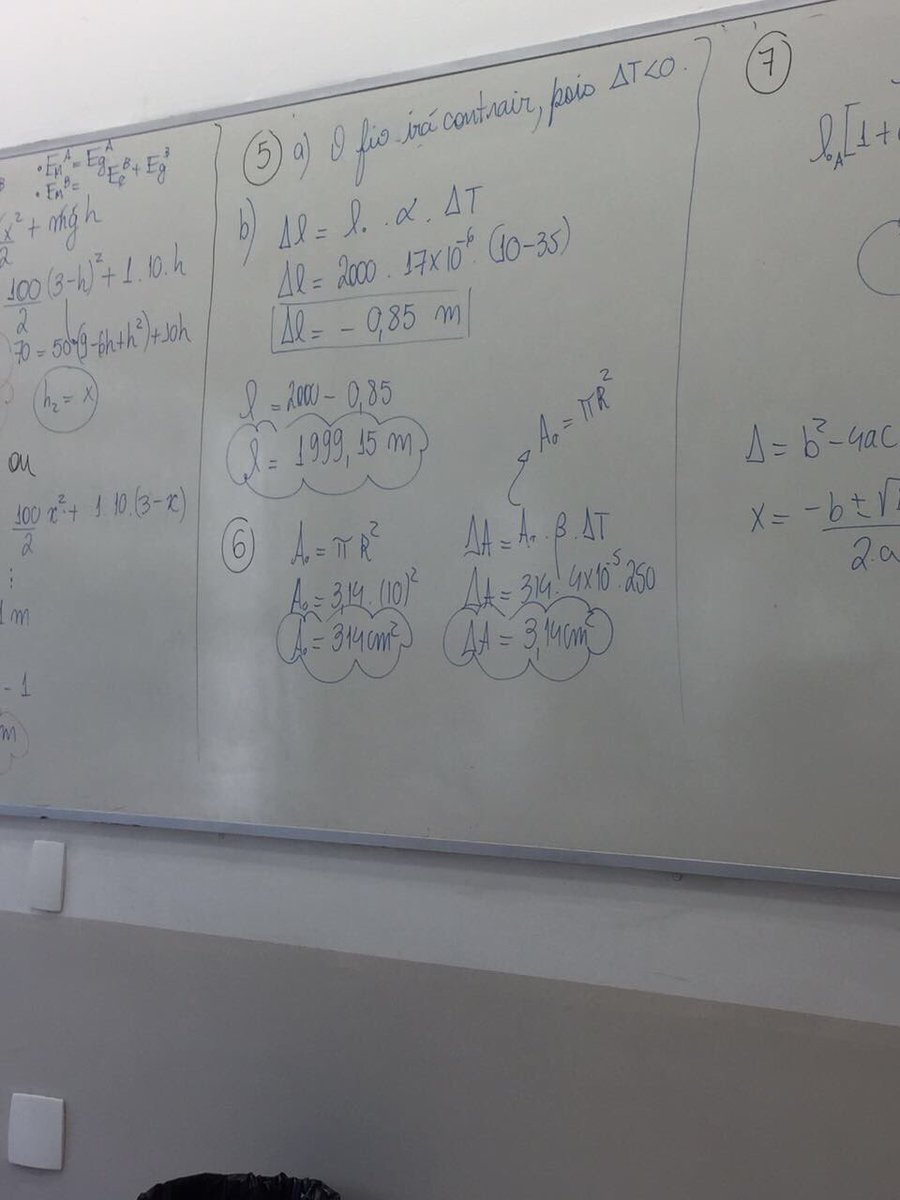 • Em^A = Eg^A
• Em^B = Ee^B + Eg^B
x²/2 + mgh
100/2 (3-h)² + 1.10.h
70 = 50.(9-6h+h²)+10h
h₂ = x
ou
100/2 x² + 1.10.(3-x)
⋮
1m
- 1
m
5 a) O fio irá contrair, pois ΔT<0.
b) Δl = l₀ . α . ΔT
Δl = 2000 . 17x10⁻⁶ . (10-35)
Δl = - 0,85 m
l = 2000 - 0,85
l = 1999,15 m
6 A₀ = π R²
A₀ = 3,14 . (10)²
A₀ = 314cm²
A₀ = πR²
ΔA = A₀ . β . ΔT
ΔA = 314 . 4x10⁻⁵ . 250
ΔA = 3,14cm²
7
l₀A [1+
Δ = b² - 4ac
x = -b ± √
2.a